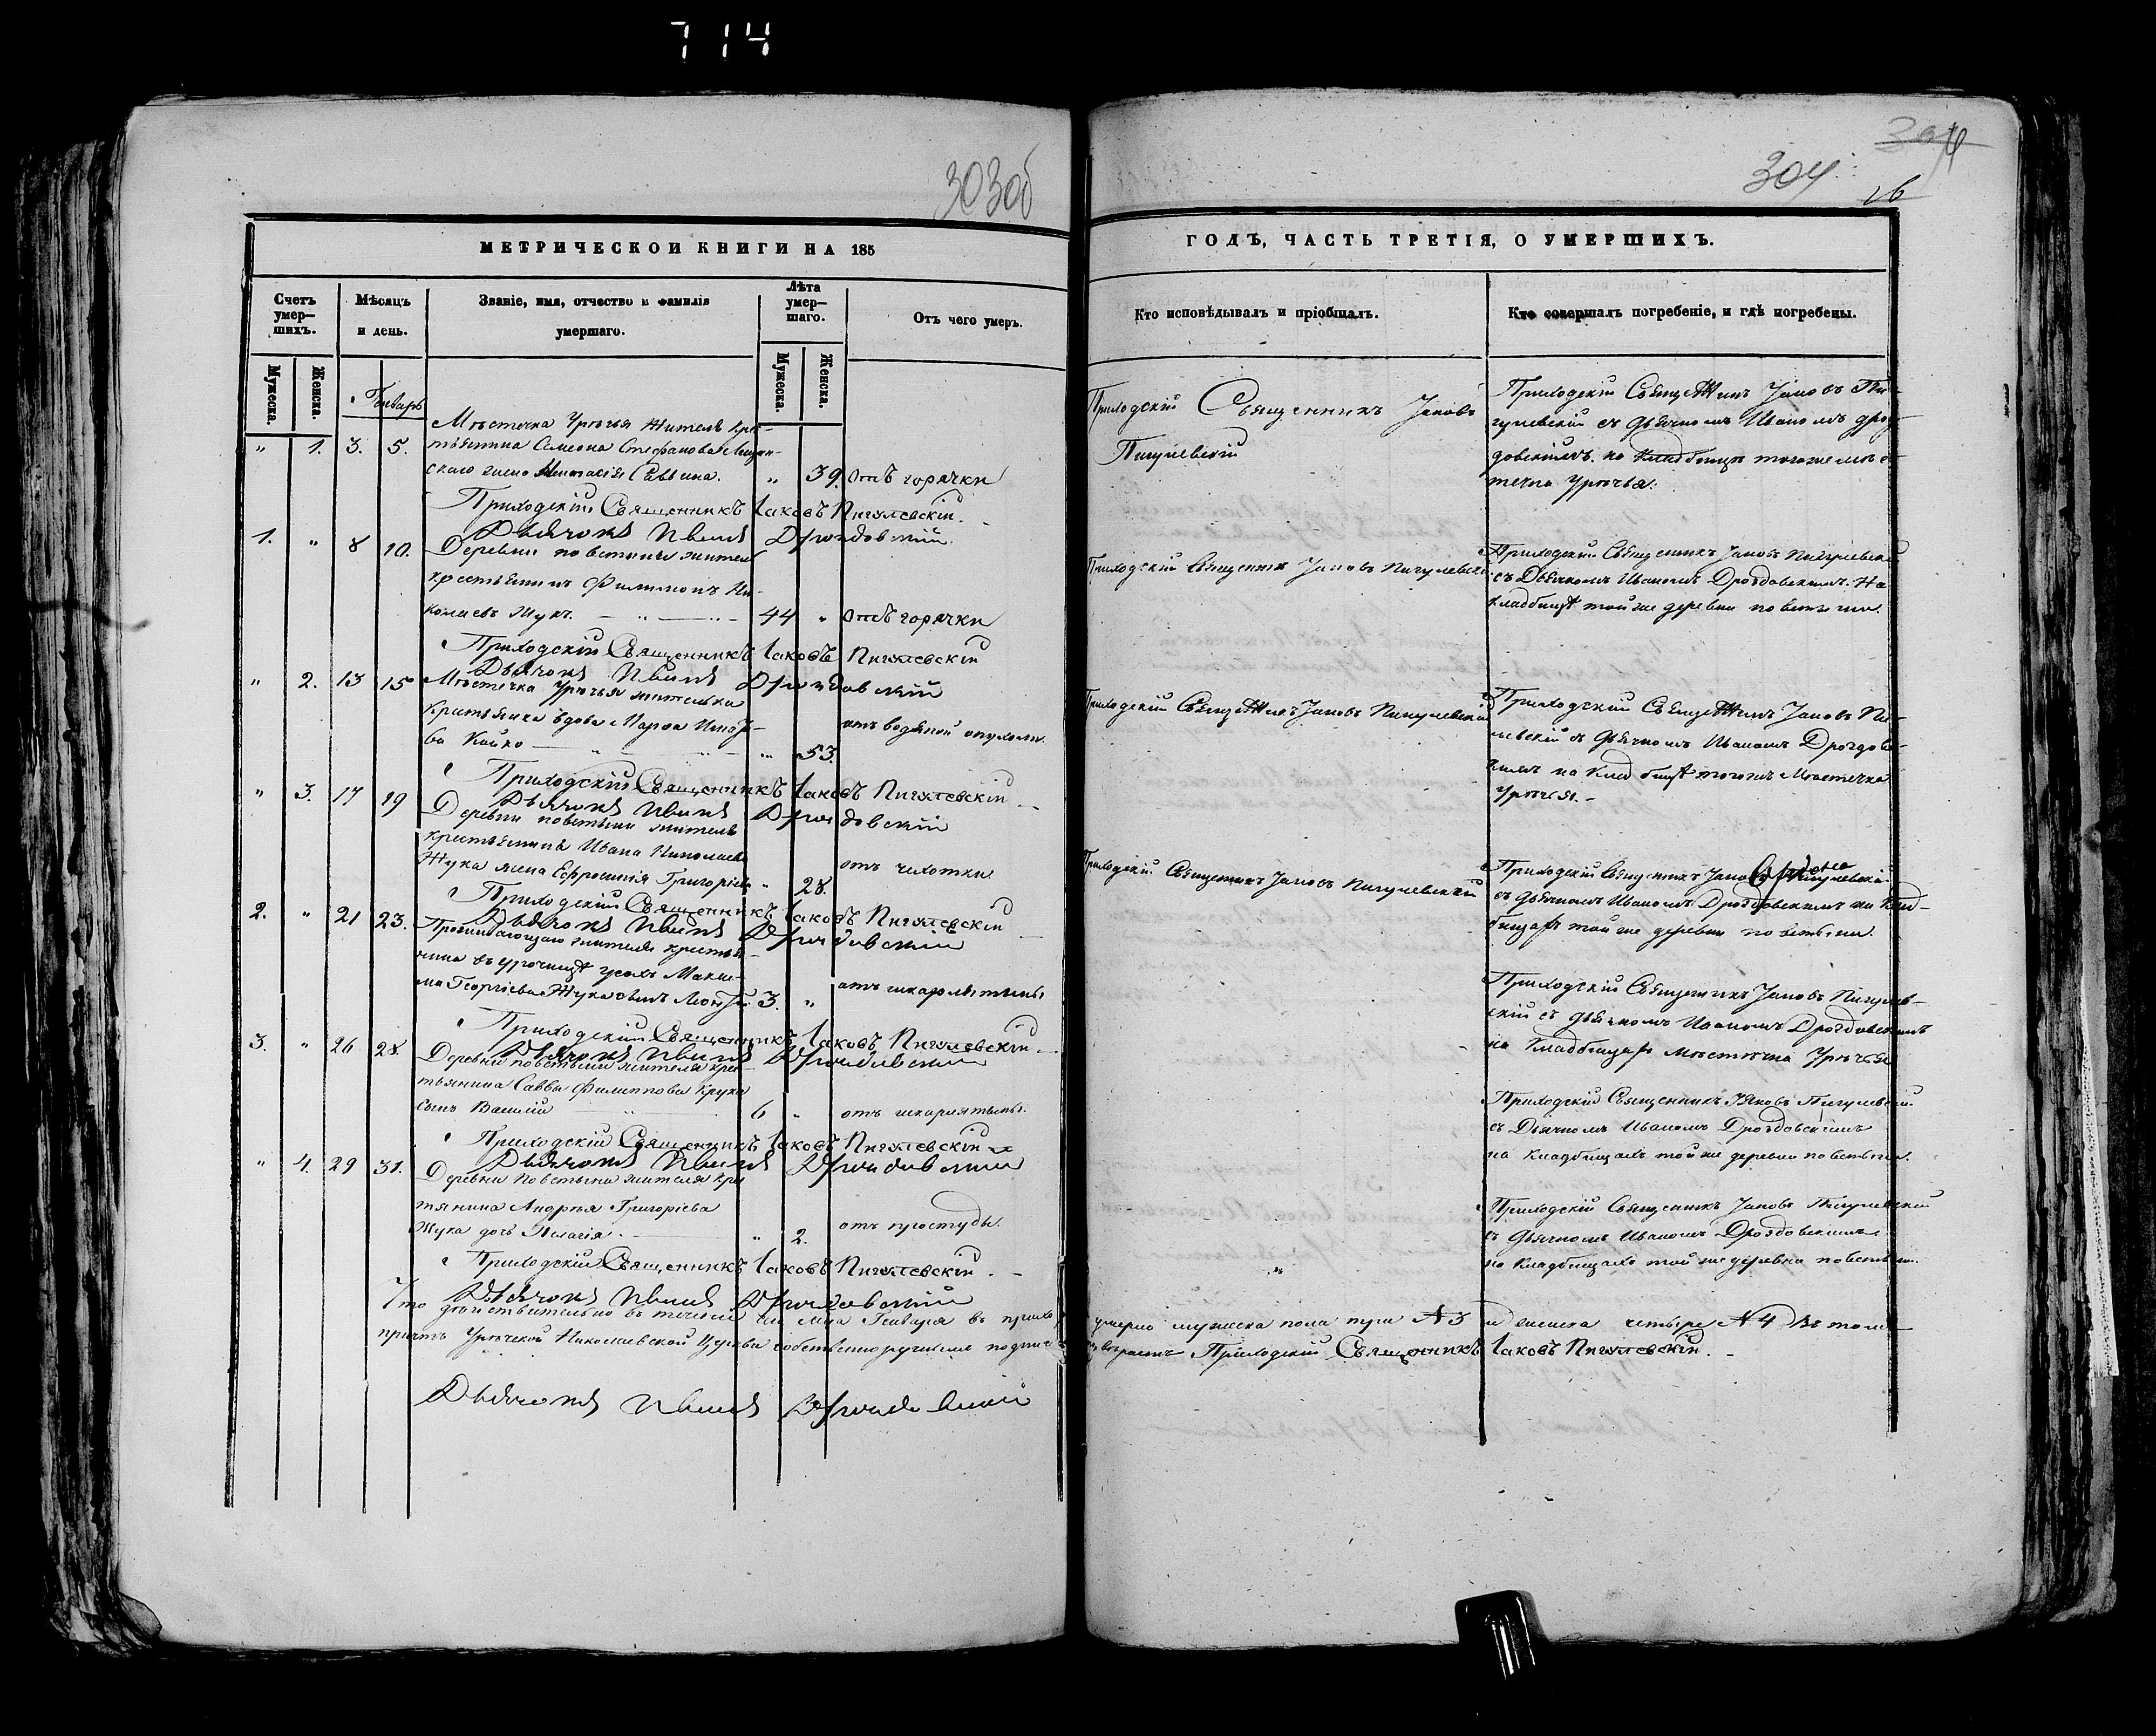 714
303об
304
304
26
МЕТРИЧЕСКОЙ КНИГИ НА 185
ГОДЪ, ЧАСТЬ ТРЕТІЯ, О УМЕРШИХЪ.
Счетъ умер—шихъ.
Мѣсяцъ и день.
Званіе, имя, отчество и фамилія умершаго.
Лѣта умер—шаго.
Отъ чего умеръ.
Кто исповѣдывалъ и пріобщалъ.
Кто совершалъ погребеніе, и гдѣ погребены.
Мужеска.
Женска.
Мужеска.
Женска.
Генварь
Мѣстечка Урѣчья жителя крес-
" 1. 3. 5. тьянина Семеона Стефанова
скаго жена Саввина. " 39. отъ горячки
Приходскій Священникъ Іаковъ
Пигулевскій
Приходскій Священникъ Іаковъ Пи-
гулевскій съ дьячкомъ Иваномъ Дроз-
довскимъ на кладбищѣ тогоже мѣс-
течка Урѣчья.
Приходскій Священникъ Іаковъ Пигулевскій.
Дьячокъ Иванъ Дроздовскій
1. " 8 10. Деревни повстыни житель
крестьянинъ Филимонъ Ни-
колаевъ Жукъ. 44 " отъ горячки
Приходскій Священникъ Іаковъ Пигулевскій
Приходскій Священникъ Іаковъ Пигулевскій
съ Дьячкомъ Иваномъ Дроздовскимъ. На
кладбищѣ той же деревни повстыни.
Приходскій Священникъ Іаковъ Пигулевскій
Дьячокъ Иванъ Дроздовскій
" 2. 13 15 Мѣстечка Урѣчья жителька
крестьянка вдова Марѳа
ва Кайко " 53. отъ водяной опухоли.
Приходскій Священникъ Іаковъ Пигулевскій
Приходскій Священникъ Іаковъ Пи-
левскій съ дьячкомъ Иваномъ Дроздовс-
кимъ на кладбищѣ тогожъ Мѣстечка
Урѣчья.-
Приходскій Священникъ Іаковъ Пигулевскій
Дьячокъ Иванъ Дроздовскій
" 3. 17 19 Деревни повстыни жителя
крестьянина Ивана Николаева
Жука жена Ефросинія Григоріева " 28. отъ чехотки
Приходскій Священникъ Іаковъ Пигулевскій
Приходскій Священникъ Іаковъ Пигулевскій
съ дьячкомъ Иваномъ Дроздовскимъ на клад-
бищахъ той же деревни повстыни.
Приходскій Священникъ Іаковъ Пигулевскій
Дьячокъ Иванъ Дроздовскій
2. " 21 23. Проживающаго жителя крестья-
нина въ урочищѣ Макси-
ма Георгіева Жука сынъ 3. " отъ шкарлятыны
Приходскій Священникъ Іаковъ Пигулев-
скій съ дьячкомъ Иваномъ Дроздовскимъ
на кладбищахъ мѣстечка Урѣчья
Приходскій Священникъ Іаковъ Пигулевскій
Дьячокъ Иванъ Дроздовскій
3. " 26 28. Деревни повстыни жителя крес-
тьянина Саввы Филиппова Крука
сынъ Василій 6 " отъ шкарлятыны.
Приходскій Священникъ Іаковъ Пигулевскій
съ Дьячкомъ Иваномъ Дроздовскимъ
на кладбищахъ той же деревни повстыни.
Приходскій Священникъ Іаковъ Пигулевскій
Дьячокъ Иванъ Дроздовскій
" 4. 29 31. Деревни повстыни жителя крес
тянина Андрея Григоріева
Жука дочь Пелагія. " 2. отъ простуды.
Приходскій Священникъ Іаковъ Пигулевскій
съ дьячкомъ Иваномъ Дроздовскимъ
на кладбищахъ той же деревни повстыни.
Приходскій Священникъ Іаковъ Пигулевскій.
Дьячокъ Иванъ Дроздовскій
Что дѣйствительно въ теченіи Генваря въ приходѣ умерло мужеска пола три № 3 и женска четыре № 4 въ томъ
причтъ Урѣчской Николаевской Церкви собственноручнымъ Приходскій Священникъ Іаковъ Пигулевскій.
Дьячокъ Иванъ Дроздовскій